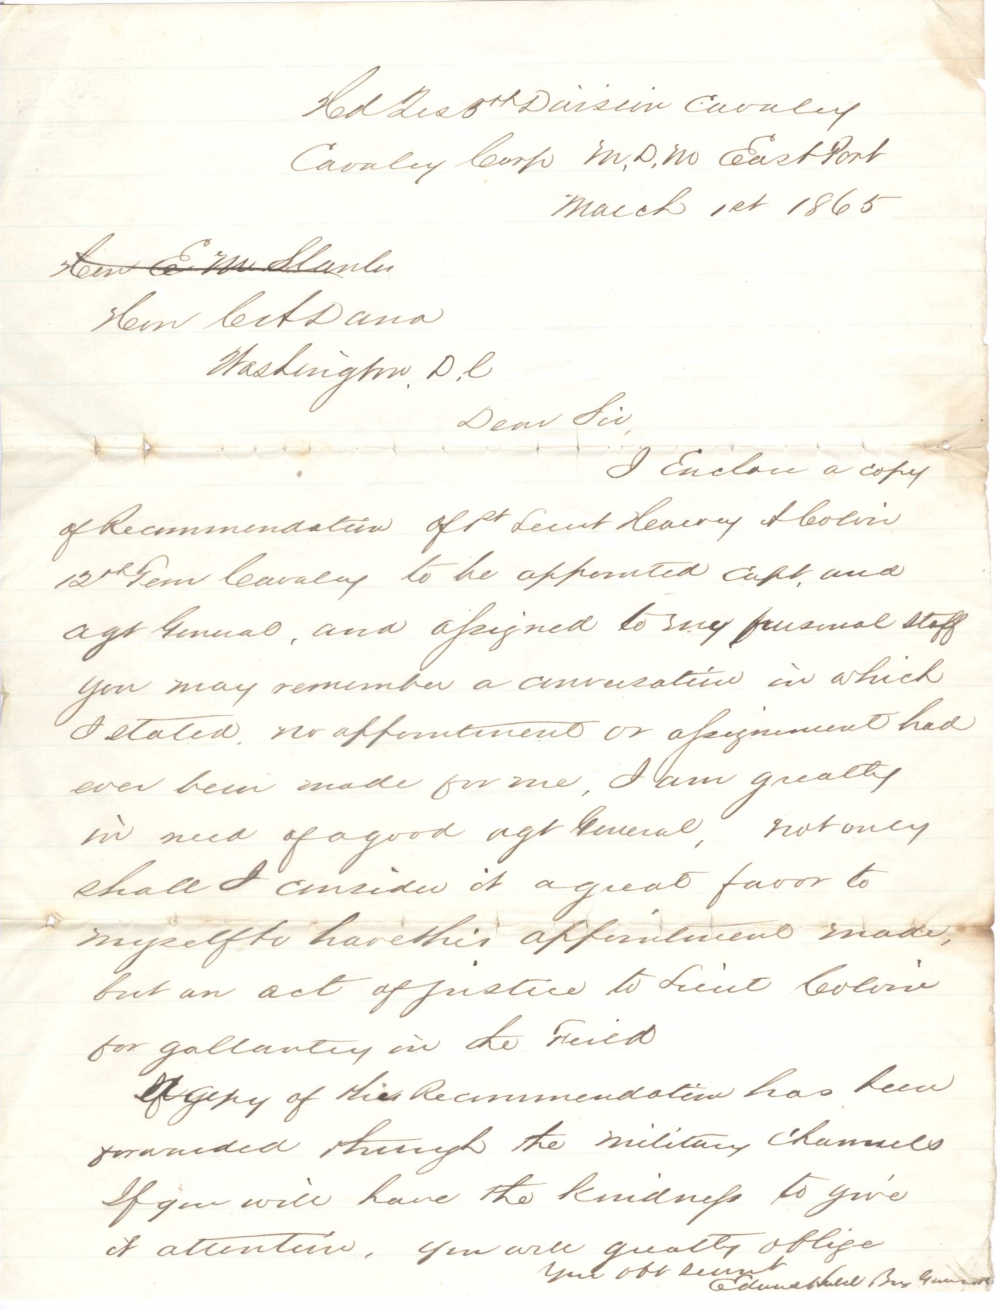 Hd Qrs 5th Division Cavalry
Cavalry Corp M.D.M East Port
March 1st 1865
Hon E M Stanton
Hon C A Dana
Washington, D.C
Dear Sir,
I Enclose a copy
of Recommendation of 1st Lieut Harvey A Colvin
12th Tenn Cavalry to be appointed Capt. and
agt General, and assigned to my personal staff
you may remember a conversation in which
I stated, no appointment or assignment had
ever been made for me, I am greatly
in need of a good agt General, not only
shall I consider it a great favor to
myself to have this appointment made,
but an act of justice to Lieut Colvin
for gallantry in the Feild
A Copy of this Recommendation has been
forwarded through the military channels
If you will have the kindness to give
it attention, you will greatly oblige
Your obt servt
Edward Hatch Brig General